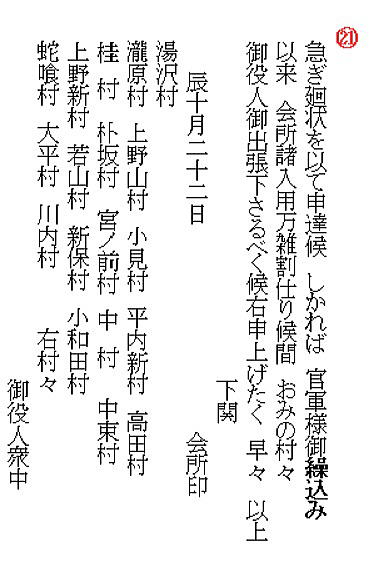 ㉑
急ぎ廻状を以て申達候　しかれば　官軍様御繰込み
以来　会所諸入用万雑割仕り候間　おみの村々
御役人御出張下さるべく候右申上げたく　早々　以上
下関　会所印
辰十月二十二日
湯沢村
瀧原村　上野山村　小見村　平内新村　高田村
桂　村　朴坂村　宮ノ前村　中　村　中東村
上野新村　若山村　新保村　小和田村
蛇喰村　大平村　川内村　右村々
御役人衆中